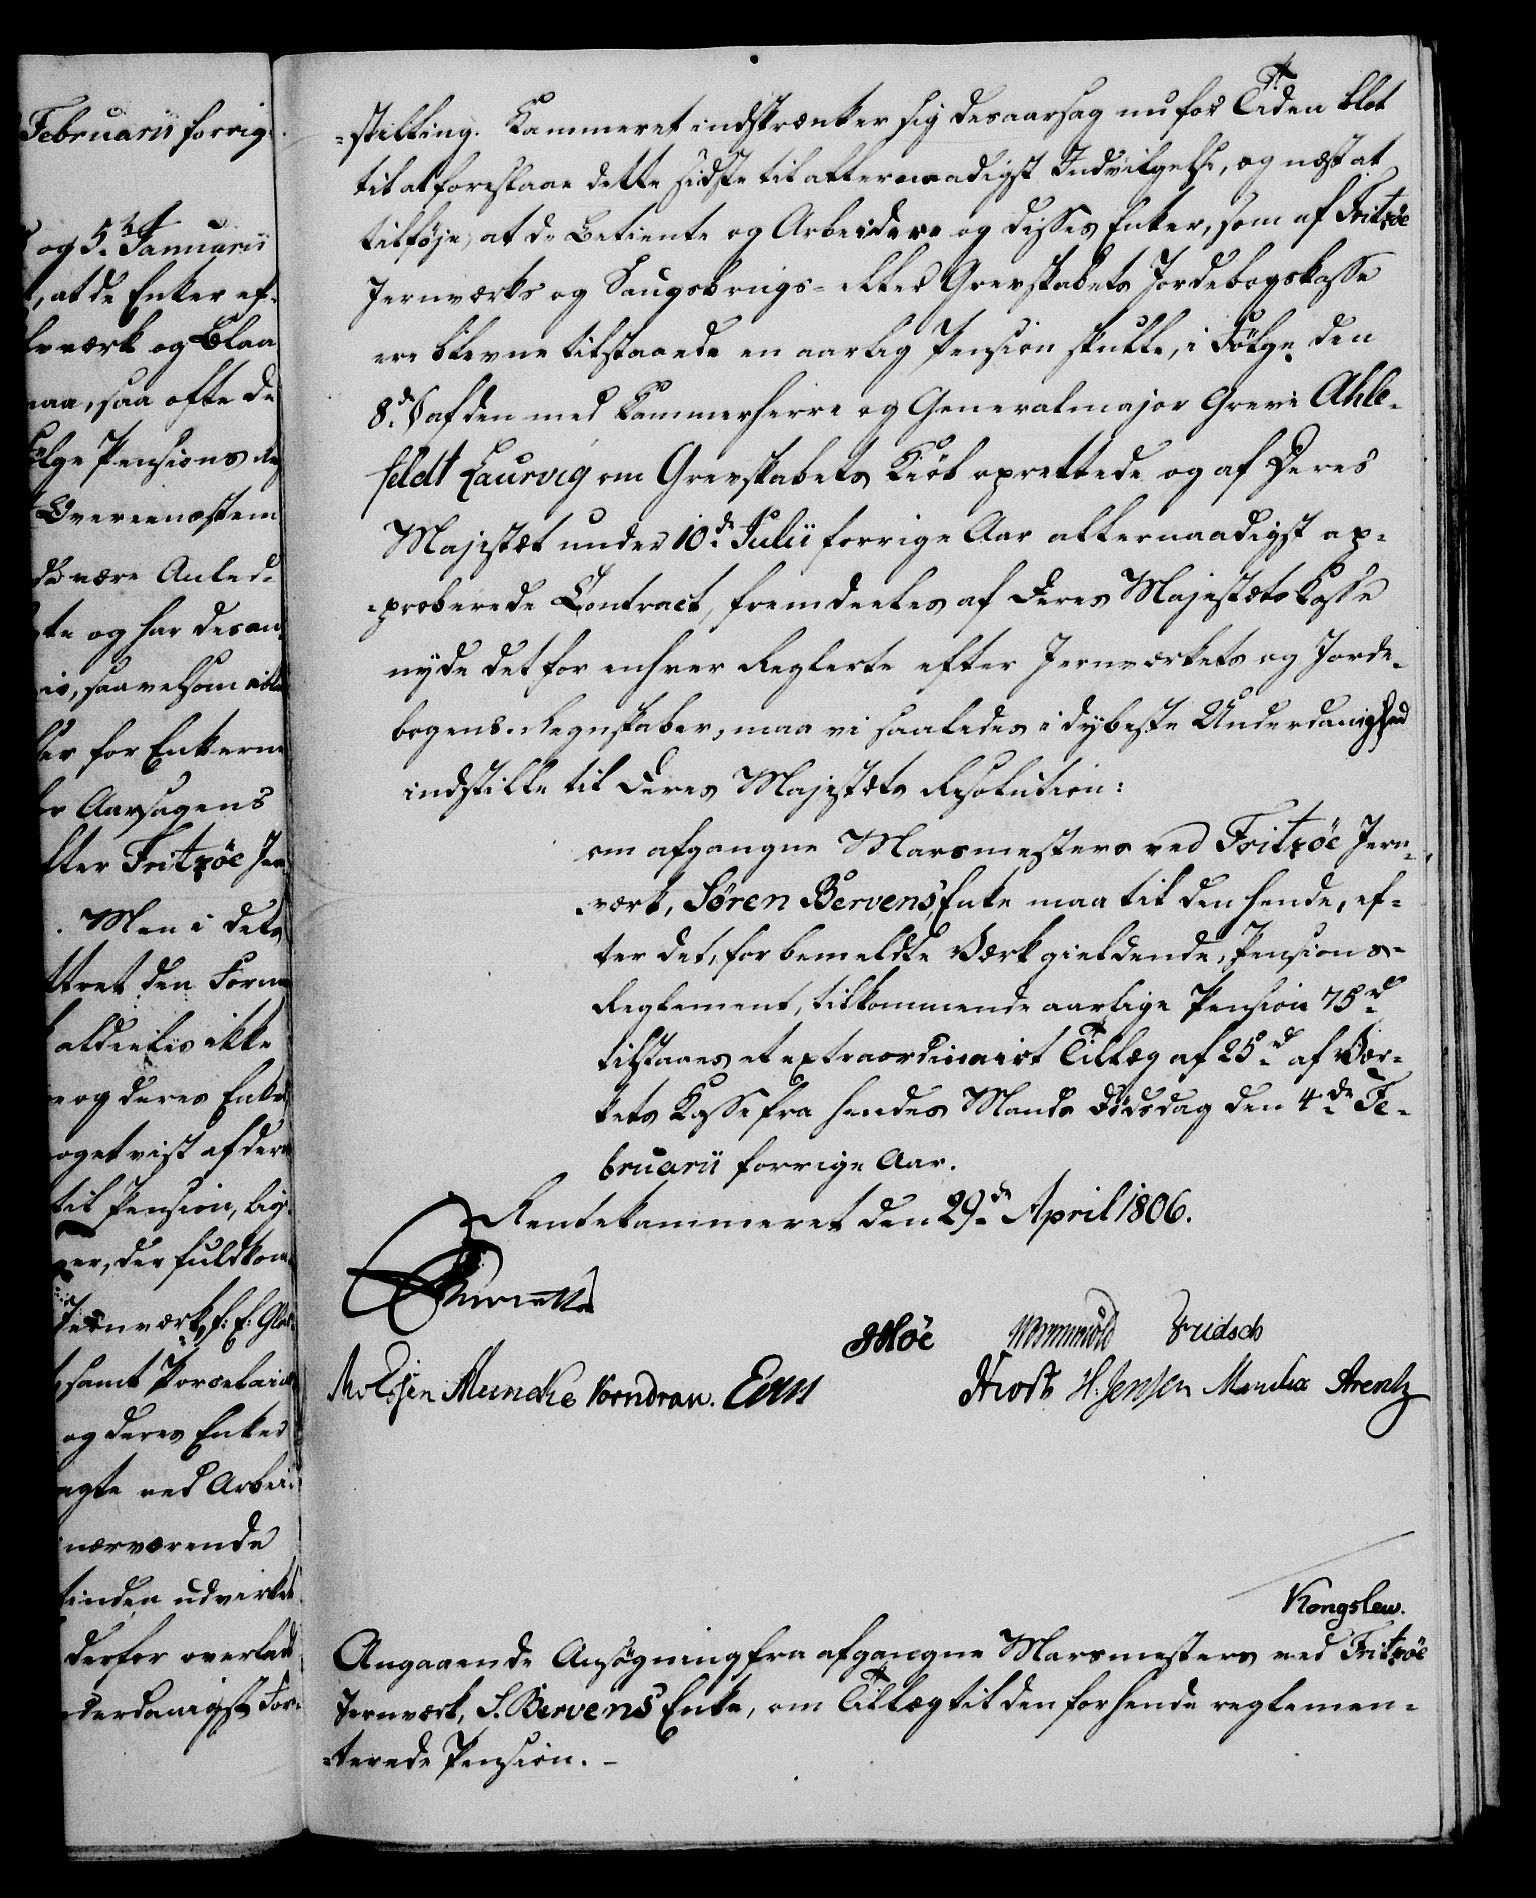 Februarii forrig
og 5te Januarii
, at de Enker ef-
værk og Blaa
maa, saa ofte de
Pensions
Overeensstem
være Anled-
te og har desaar
, saavelsom
for Enkerne
Aarsagens
ller Fritzöe Jer
. Men i dets
ttret den Form
aldeeles ikke
og deres Enke
oget vist af dem
til Pension, lig-
er, der fuldkom
Jernværk, s: s: Glas
samt Porcelain
og deres Enker
ved Arbei-
nærværende
tinden udvirket
derfor overlade
derdanigst For-
-stilling. Kammeret indskrænker sig desaarsag nu for Tiden blot
til at foreslaae dette sidste til allernaadigst Indvilgelse, og næst at
tilföje, at de Betiente og Arbeidere og disses Enker, som af Fritzöe
Jernværks og Saugbrugs- eller Grevskabets Jordebogskasse
ere blevne tilstaaede en aarlig Pension skulle, i Fölge den
8de § af den med Kammerherre og Generalmajor Greve Ahle-
feldt Laurvig om Grevskabets Kiöb oprettede og af Deres
Majestæt under 10de Julii forrige Aar allernaadigst ap-
-proberede Contract, fremdeeles af Deres Majestæts Kasse
nyde det for enhver Reglerte efter Jernværkets og Jorde-
bogens Regnskaber, maa vi saaledes i dybeste Underdanighed
indstille til Deres Majestæts Resolution:
om afgangne Marsmesters ved Fritzöe Jern-
værk, Sören Bervens, Enke maa til den hende, ef-
ter det, for bemeldte Værk gieldende, Pensions-
Reglement, tilkommende aarlige Pension 75 rd
tilstaaes et extraordinairt Tillæg af 25 rd af Vær-
kets Kasse fra hendes Mands Dödsdag den 4de Fe-
bruarii forrige Aar.
Rentekammeret den 29de April 1806.
Höe Wormskiold Fridsch
Meincke Vorndran. H. Jensen Arentz
Kongslew.
Angaaende Ansögning fra afgangne Marsmesters ved Fritzöe
Jernværk, S. Bervens Enke, om Tillæg til den for hende reglemen-
-terede Pension. -